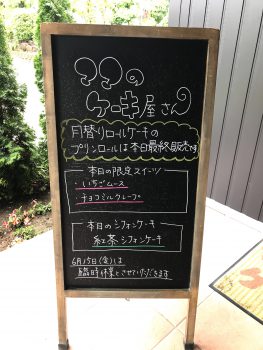 ママの
ケーキ屋さん
月替りロールケーキの
プリンロールは本日最終販売です
本日の限定スイーツ
・いちごムース
・チョコミルクレープ
本日のシフォンケーキ
紅茶シフォンケーキ
6月15日(金)は
臨時休業とさせていただきます